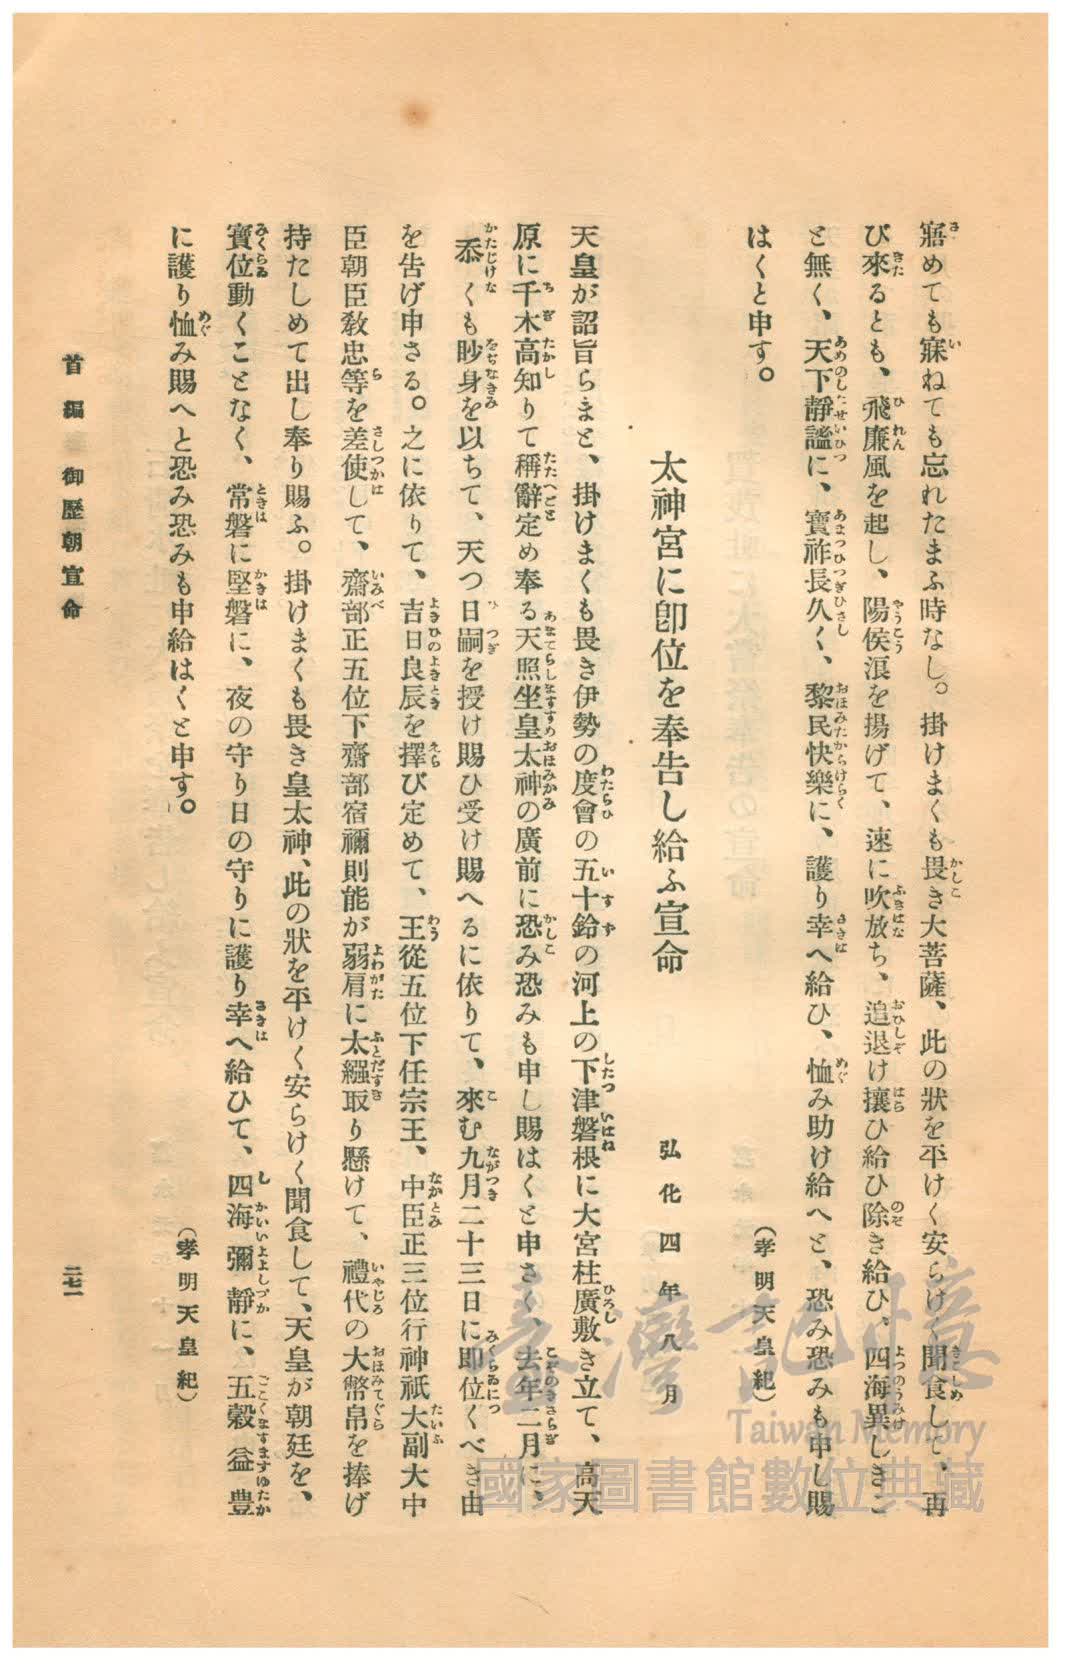 寤めても寐ねても忘れたまふ時なし。掛けまくも畏き大菩薩、此の狀を平けく安らけく聞食して、再
び來るとも、飛廉風を起し、陽侯浪を揚げて、速に吹放ち、追退け攘ひ給ひ除き給ひ、四海異しきこ
と無く、天下靜謐に、寶祚長久く、黎民快樂に、護り幸へ給ひ、恤み助け給へと、恐み恐みも申し賜
はくと申す。
（孝明天皇紀）
太神宮に卽位を奉告し給ふ宣命
弘化四年八月
天皇が詔旨らまと、掛けまくも畏き伊勢の度會の五十鈴の河上の下津磐根に大宮柱廣敷き立て、高天
原に千木高知りて稱辭定め奉る天照坐皇太神の廣前に恐み恐みも申し賜はくと申さく、去年二月に、
忝くも眇身を以ちて、天つ日嗣を授け賜ひ受け賜へるに依りて、來む九月二十三日に卽位くべき由
を告げ申さる。之に依りて、吉日良辰を擇び定めて、王從五位下任宗王、中臣正三位行神祇大副大中
臣朝臣敎忠等を差使して、齋部正五位下齋部宿禰則能が弱肩に太繦取り懸けて、禮代の大幣帛を捧げ
持たしめて出し奉り賜ふ。掛けまくも畏き皇太神、此の狀を平けく安らけく聞食して、天皇が朝廷を、
寶位動くことなく、常磐に堅磐に、夜の守り日の守りに護り幸へ給ひて、四海彌靜に、五穀益豊
に護り恤み賜へと恐み恐みも申給はくと申す。
（孝明天皇紀）
首編 御歷朝宣命
二七一
臺灣記憶
Taiwan Memory
國家圖書館數位典藏